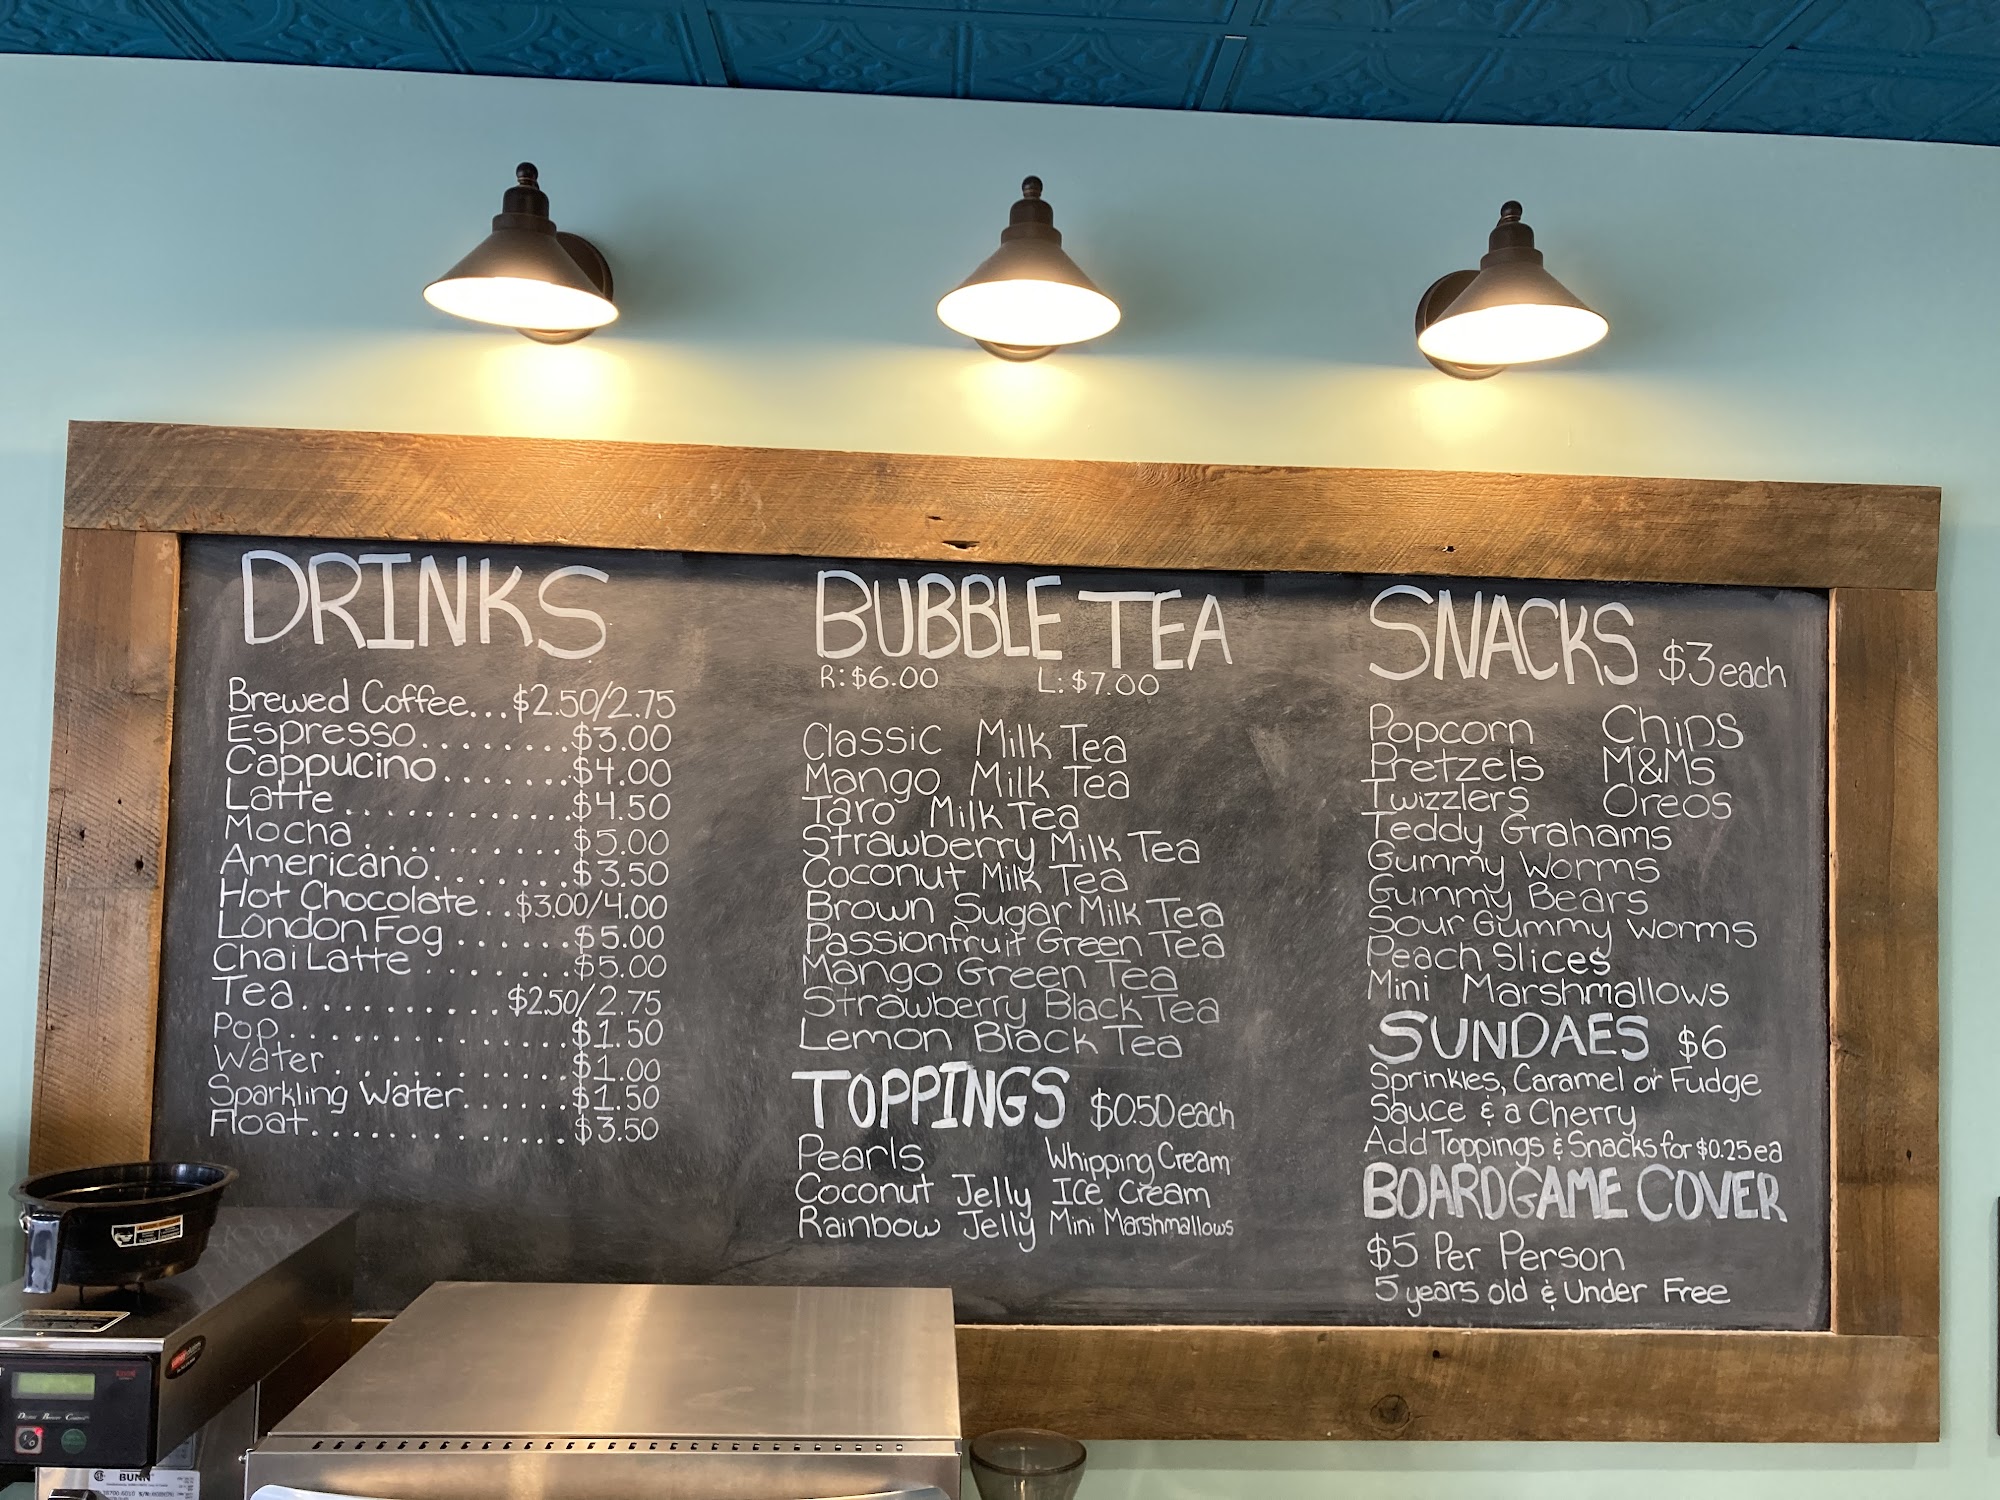 DRINKS
Brewed Coffee...$2.50/2.75
Espresso........$3.00
Cappucino.......$4.00
Latte............$4.50
Mocha..........$5.00
Americano.......$3.50
Hot Chocolate..$3.00/4.00
London Fog......$5.00
Chai Latte........$5.00
Tea..........$2.50/2.75
Pop..............$1.50
Water............$1.00
Sparkling Water......$1.50
Float.............$3.50
BUBBLE TEA
R: $6.00 L: $7.00
Classic Milk Tea
Mango Milk Tea
Taro Milk Tea
Strawberry Milk Tea
Coconut Milk Tea
Brown Sugar Milk Tea
Passionfruit Green Tea
Mango Green Tea
Strawberry Black Tea
Lemon Black Tea
TOPPINGS $0.50 each
Pearls Whipping Cream
Coconut Jelly Ice Cream
Rainbow Jelly Mini Marshmallows
SNACKS $3 each
Popcorn Chips
Pretzels M&Ms
Twizzlers Oreos
Teddy Grahams
Gummy Worms
Gummy Bears
Sour Gummy Worms
Peach Slices
Mini Marshmallows
SUNDAES $6
Sprinkles, Caramel or Fudge
Sauce & a Cherry
Add Toppings & Snacks for $0.25 ea
BOARDGAME COVER
$5 Per Person
5 years old & Under Free
BUNN